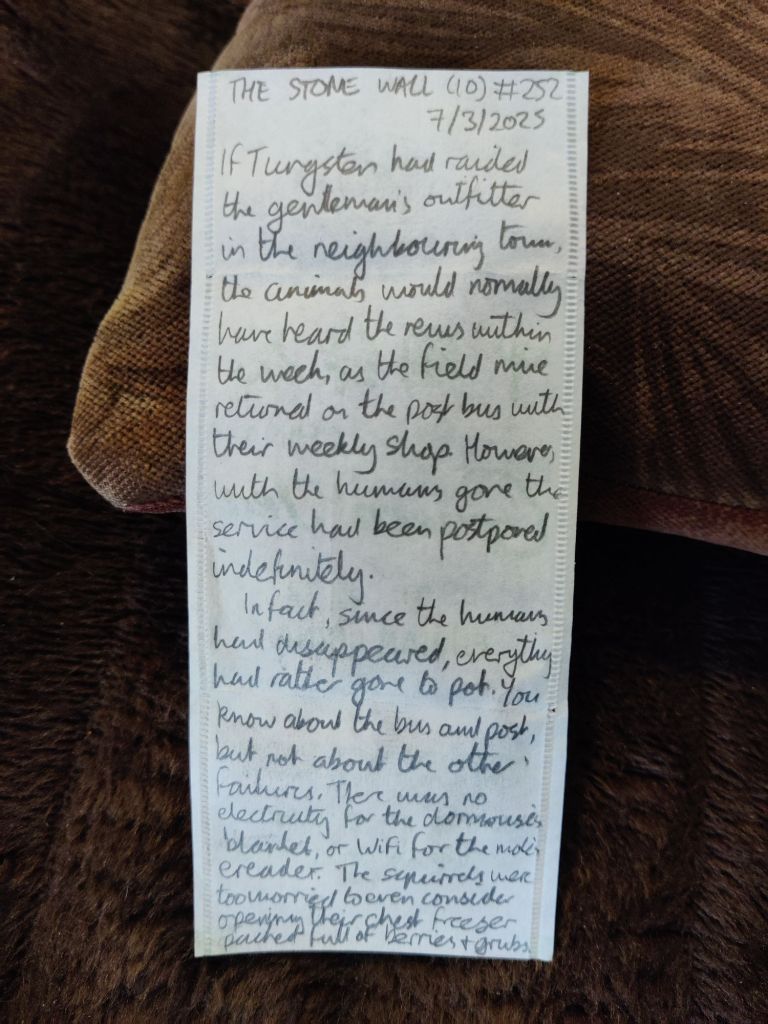 THE STONE WALL (10) #252
7/3/2025
If Tungsten had raided
the gentleman's outfitter
in the neighbouring town,
the animals would normally
have heard the news within
the week, as the field mice
returned on the post bus with
their weekly shop. However,
with the humans gone the
service had been postponed
indefinitely.
In fact, since the humans
had disappeared, everything
had rather gone to pot. You
know about the bus and post,
but not about the other
failures. There was no
electricity for the dormouse's
blanket, or WiFi for the mole's
ereader. The squirrels were
too worried to even consider
opening their chest freezer
packed full of berries + grubs.